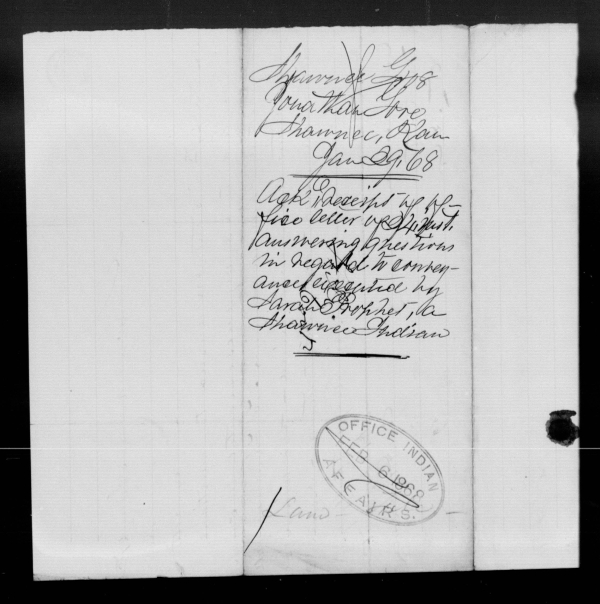 Shawnee G 108
Jonathan Gore
Shawnee, Kan
Jan 29, 68
Ack's receipt of of-
fice letter of 24, inst.
answering questions
in regard to convey-
ance executed by
Sarah Prophet, a
Shawnee Indian
OFFICE INDIAN
FEB 6 1868
AFFAIRS.
Land